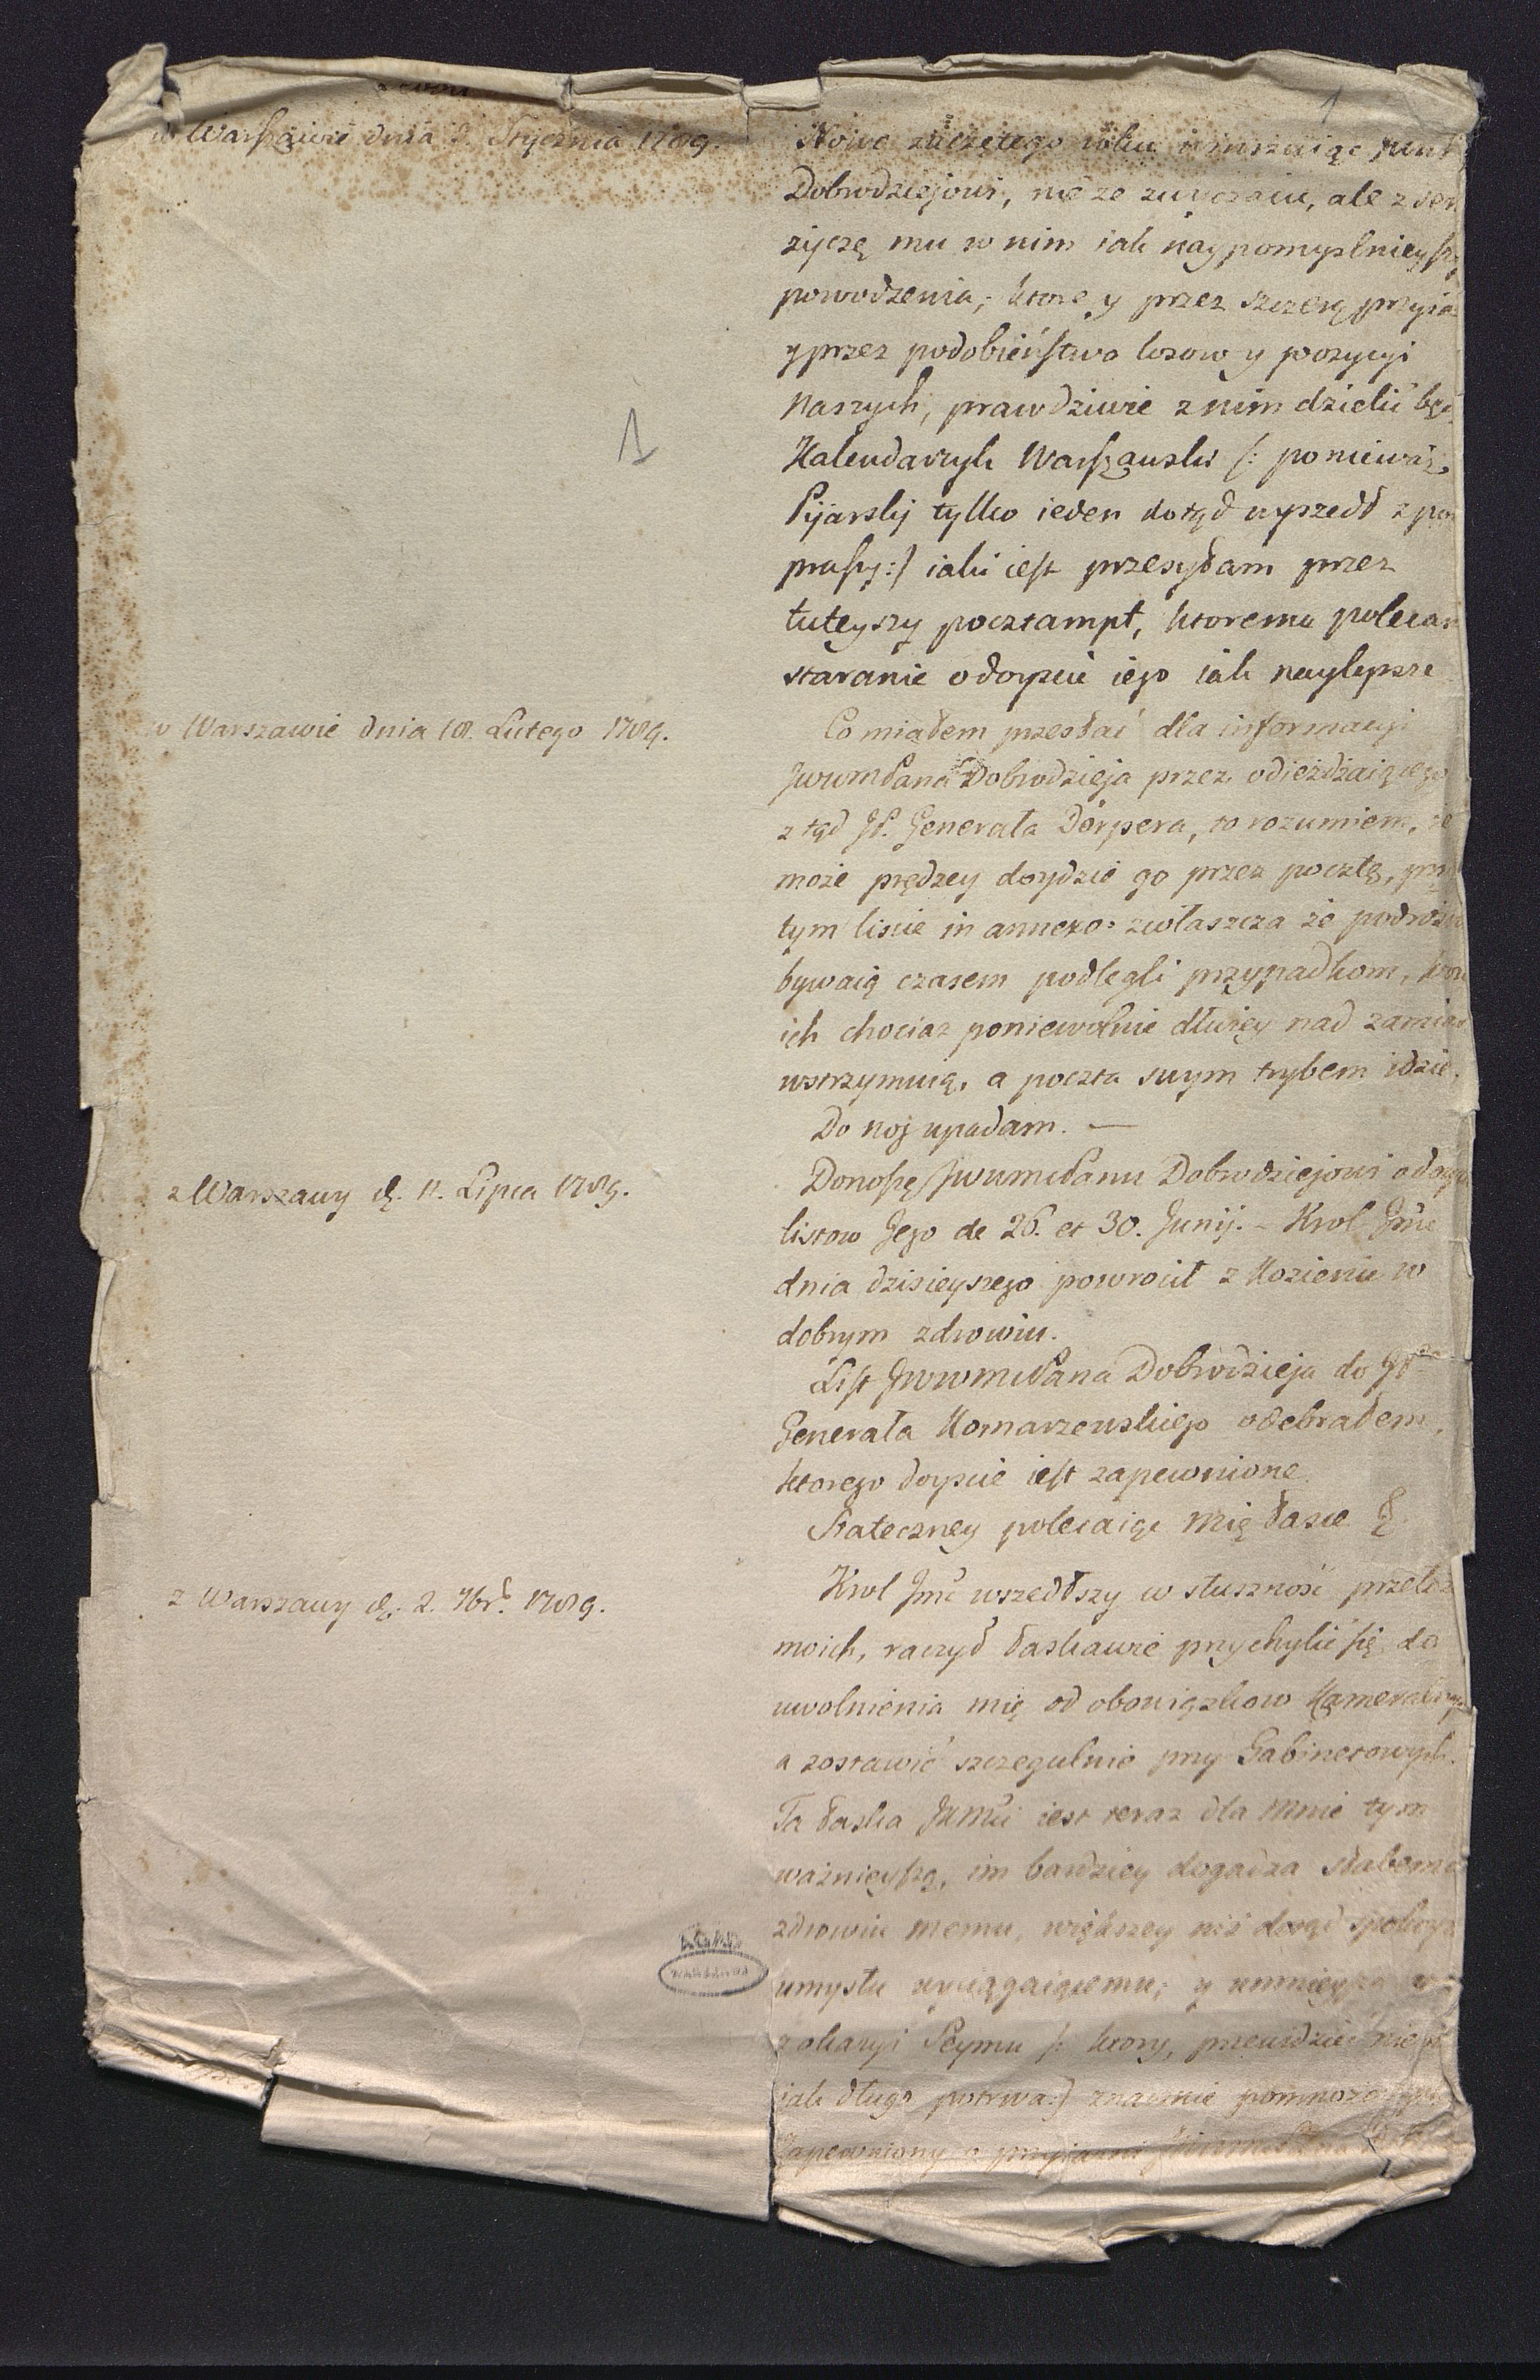 1
w Warszawie dnia Stycznia 1789.
Nowe zaczętego roku
Dobrodziejowi, nie ze zwyczaiu, ale z
życzę mu w nim iak naypomyslniey
powodzenia; ktore y przez szczerą
y przez podobieństwo losow y pozycyi
Naszych, prawdziwie z nim dzielić
1
Kalendarzyk Warszawski /: ponieważ
Pijarskij tylko ieden dotąd wyszedł z pod
prasy :/ iaki iest przesyłam przez
tuteyszy pocztampt, ktoremu polecam
staranie o doyscie iego iak naylepsze
w Warszawie dnia 18. Lutego 1789.
Co miałem przesłać dla informacyi
JWWMPana Dobrodzieja przez odieżdżaiącego
z tąd JP. Generała Dörpera, to rozumiem, że
może prędzey doydzie go przez pocztę, przy
tym liscie in annexo: zwłaszcza że
bywaią czasem podlegli przypadkom, ktore
ich chociaz poniewolnie dłużey nad zamiar
wstrzymuią, a poczta swym trybem idzie.
Do nog upadam. —
z Warszawy d. 11. Lipca 1789.
Donoszę JWWMPanu Dobrodziejowi o
listow Jego de 26. et 30. Junij. - Krol Jmć
dnia dzisieyszego powrocił z Kozienic w
dobrym zdrowiu.
List JWWMPana Dobrodzieja do JP
Generała Komarzewskiego odebrałem,
ktorego doyscie iest zapewnione.
Stateczney polecaiąc Mię łasce
z Warszawy d. 2. 7br. 1789.
Krol Jmć wszedłszy w słuszność
moich, raczył łaskawie przychylić się do
uwolnienia mię od obowiązkow Kameralnych
a zostawić szczegulnie przy Gabinetowych.
Ta łaska JKMci iest teraz dla Mnie tym
ważnieyszą, im bardziey dogadza słabemu
zdrowiu memu, większey niż dotąd
umysłu wyciągaiącemu; y
z okazyi Seymu /: ktory, przewidzieć nie
iak długo potrwa :/ znacznie
Zapewniony o przyjazni
AGAD
WARSZAWA